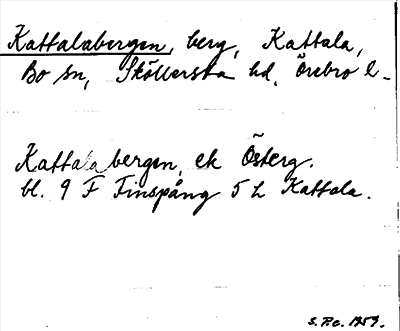 Kattalabergen, berg, Kattala,
Bo sn, Sköllersta hd, Örebro l-
Kattalabergen, ek Österg.
bl. 9 F Finspång 5 h Kattala.
S. P.e. 1959.